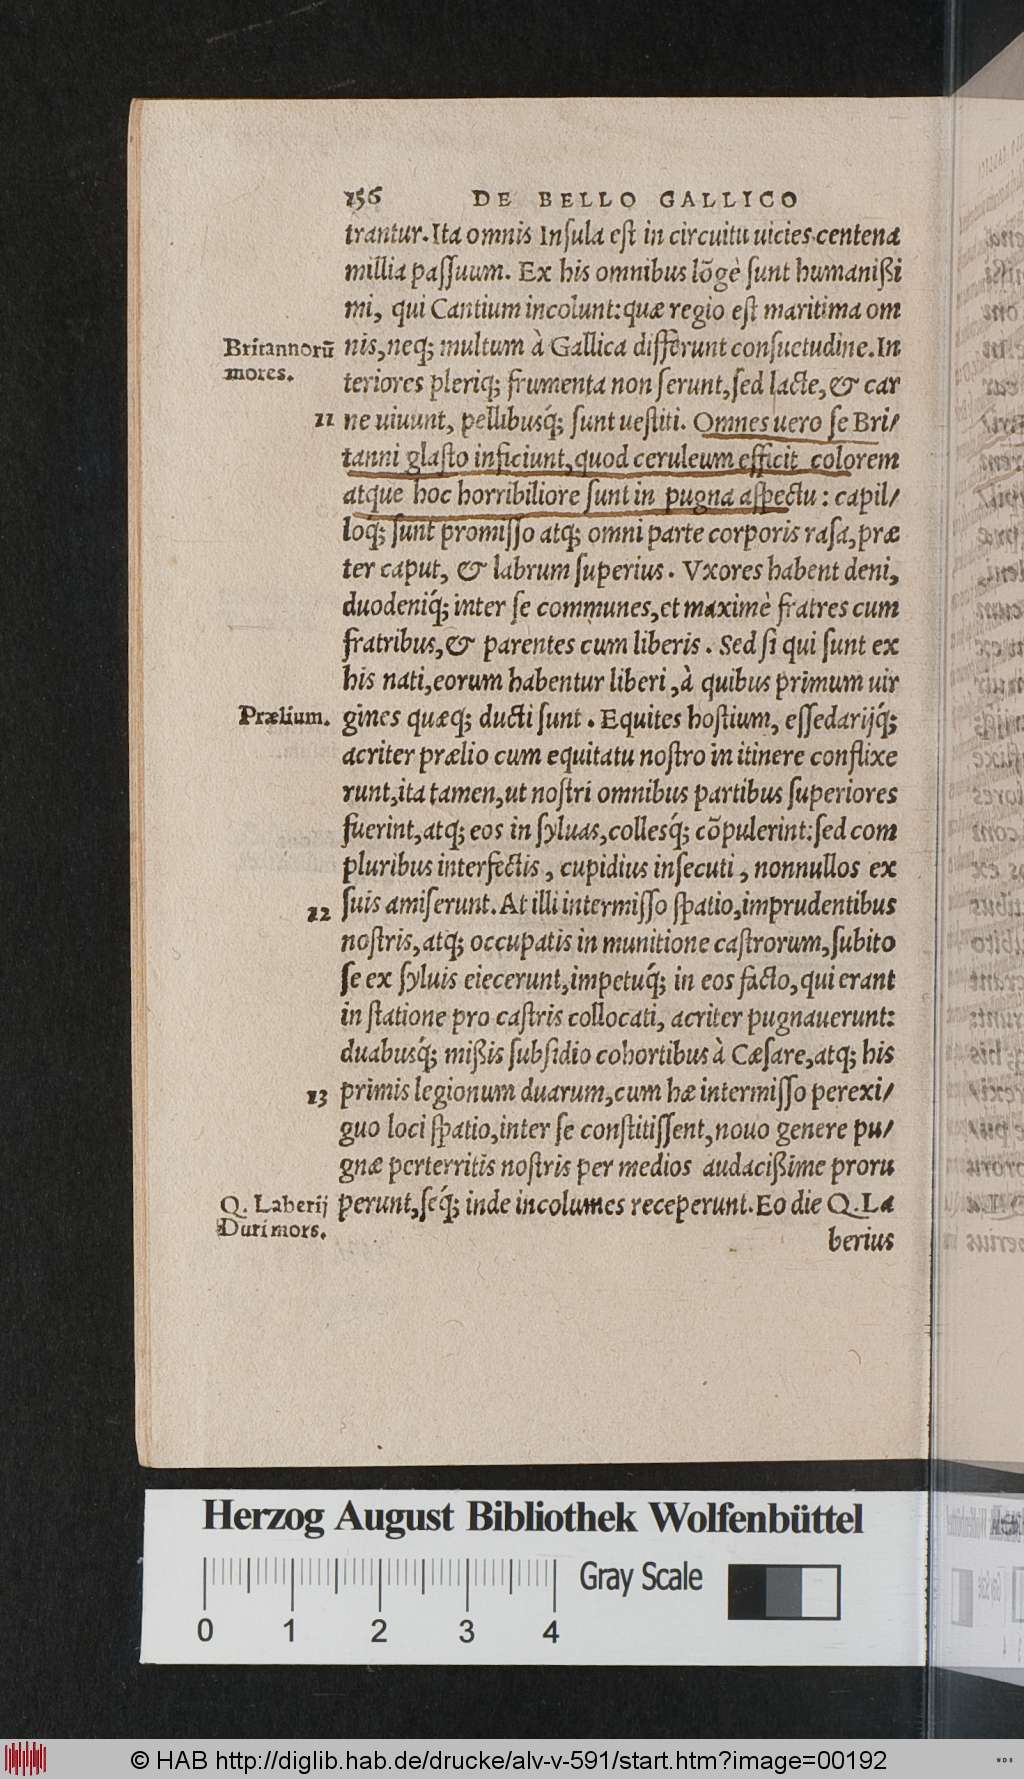 156 DE BELLO GALLICO
trantur. Ita omnis Inſula eſt in circuitu uicies centena
millia paſſuum. Ex his omnibus lõgè ſunt humanißi
mi, qui Cantium incolunt: quæ regio eſt maritima om
Britannorũ
mores.
nis, neq; multum à Gallica differunt conſuetudine. In
teriores pleriq; frumenta non ſerunt, ſed lacte, & car
11 ne uiuunt, pellibusq́; ſunt ueſtiti. Omnes uero ſe Bri/
tanni glaſto inficiunt, quod ceruleum efficit colorem
atque hoc horribiliore ſunt in pugna aſpectu: capil/
loq́; ſunt promiſſo atq; omni parte corporis raſa, præ
ter caput, & labrum ſuperius. Vxores habent deni,
duodeniq́; inter ſe communes, et maximè fratres cum
fratribus, & parentes cum liberis. Sed ſi qui ſunt ex
his nati, eorum habentur liberi, à quibus primum uir
Prælium. gines quæq; ducti ſunt. Equites hoſtium, eſſedarijq́;
acriter prælio cum equitatu noſtro in itinere conflixe
runt, ita tamen, ut noſtri omnibus partibus ſuperiores
fuerint, atq; eos in ſyluas, collesq́; cõpulerint: ſed com
pluribus interfectis, cupidius inſecuti, nonnullos ex
12 ſuis amiſerunt. At illi intermiſſo ſpatio, imprudentibus
noſtris, atq; occupatis in munitione caſtrorum, ſubito
ſe ex ſyluis eiecerunt, impetuq́; in eos facto, qui erant
in ſtatione pro caſtris collocati, acriter pugnauerunt:
duabusq́; mißis ſubſidio cohortibus à Cæſare, atq; his
13 primis legionum duarum, cum hæ intermiſſo perexi/
guo loci ſpatio, inter ſe conſtitiſſent, nouo genere pu/
gnæ perterritis noſtris per medios audacißime proru
Q. Laberij
Duri mors.
perunt, ſeq́; inde incolumes receperunt. Eo die Q. La
berius
Herzog August Bibliothek Wolfenbüttel
Gray Scale
0 1 2 3 4
© HAB http://diglib.hab.de/drucke/alv-v-591/start.htm?image=00192